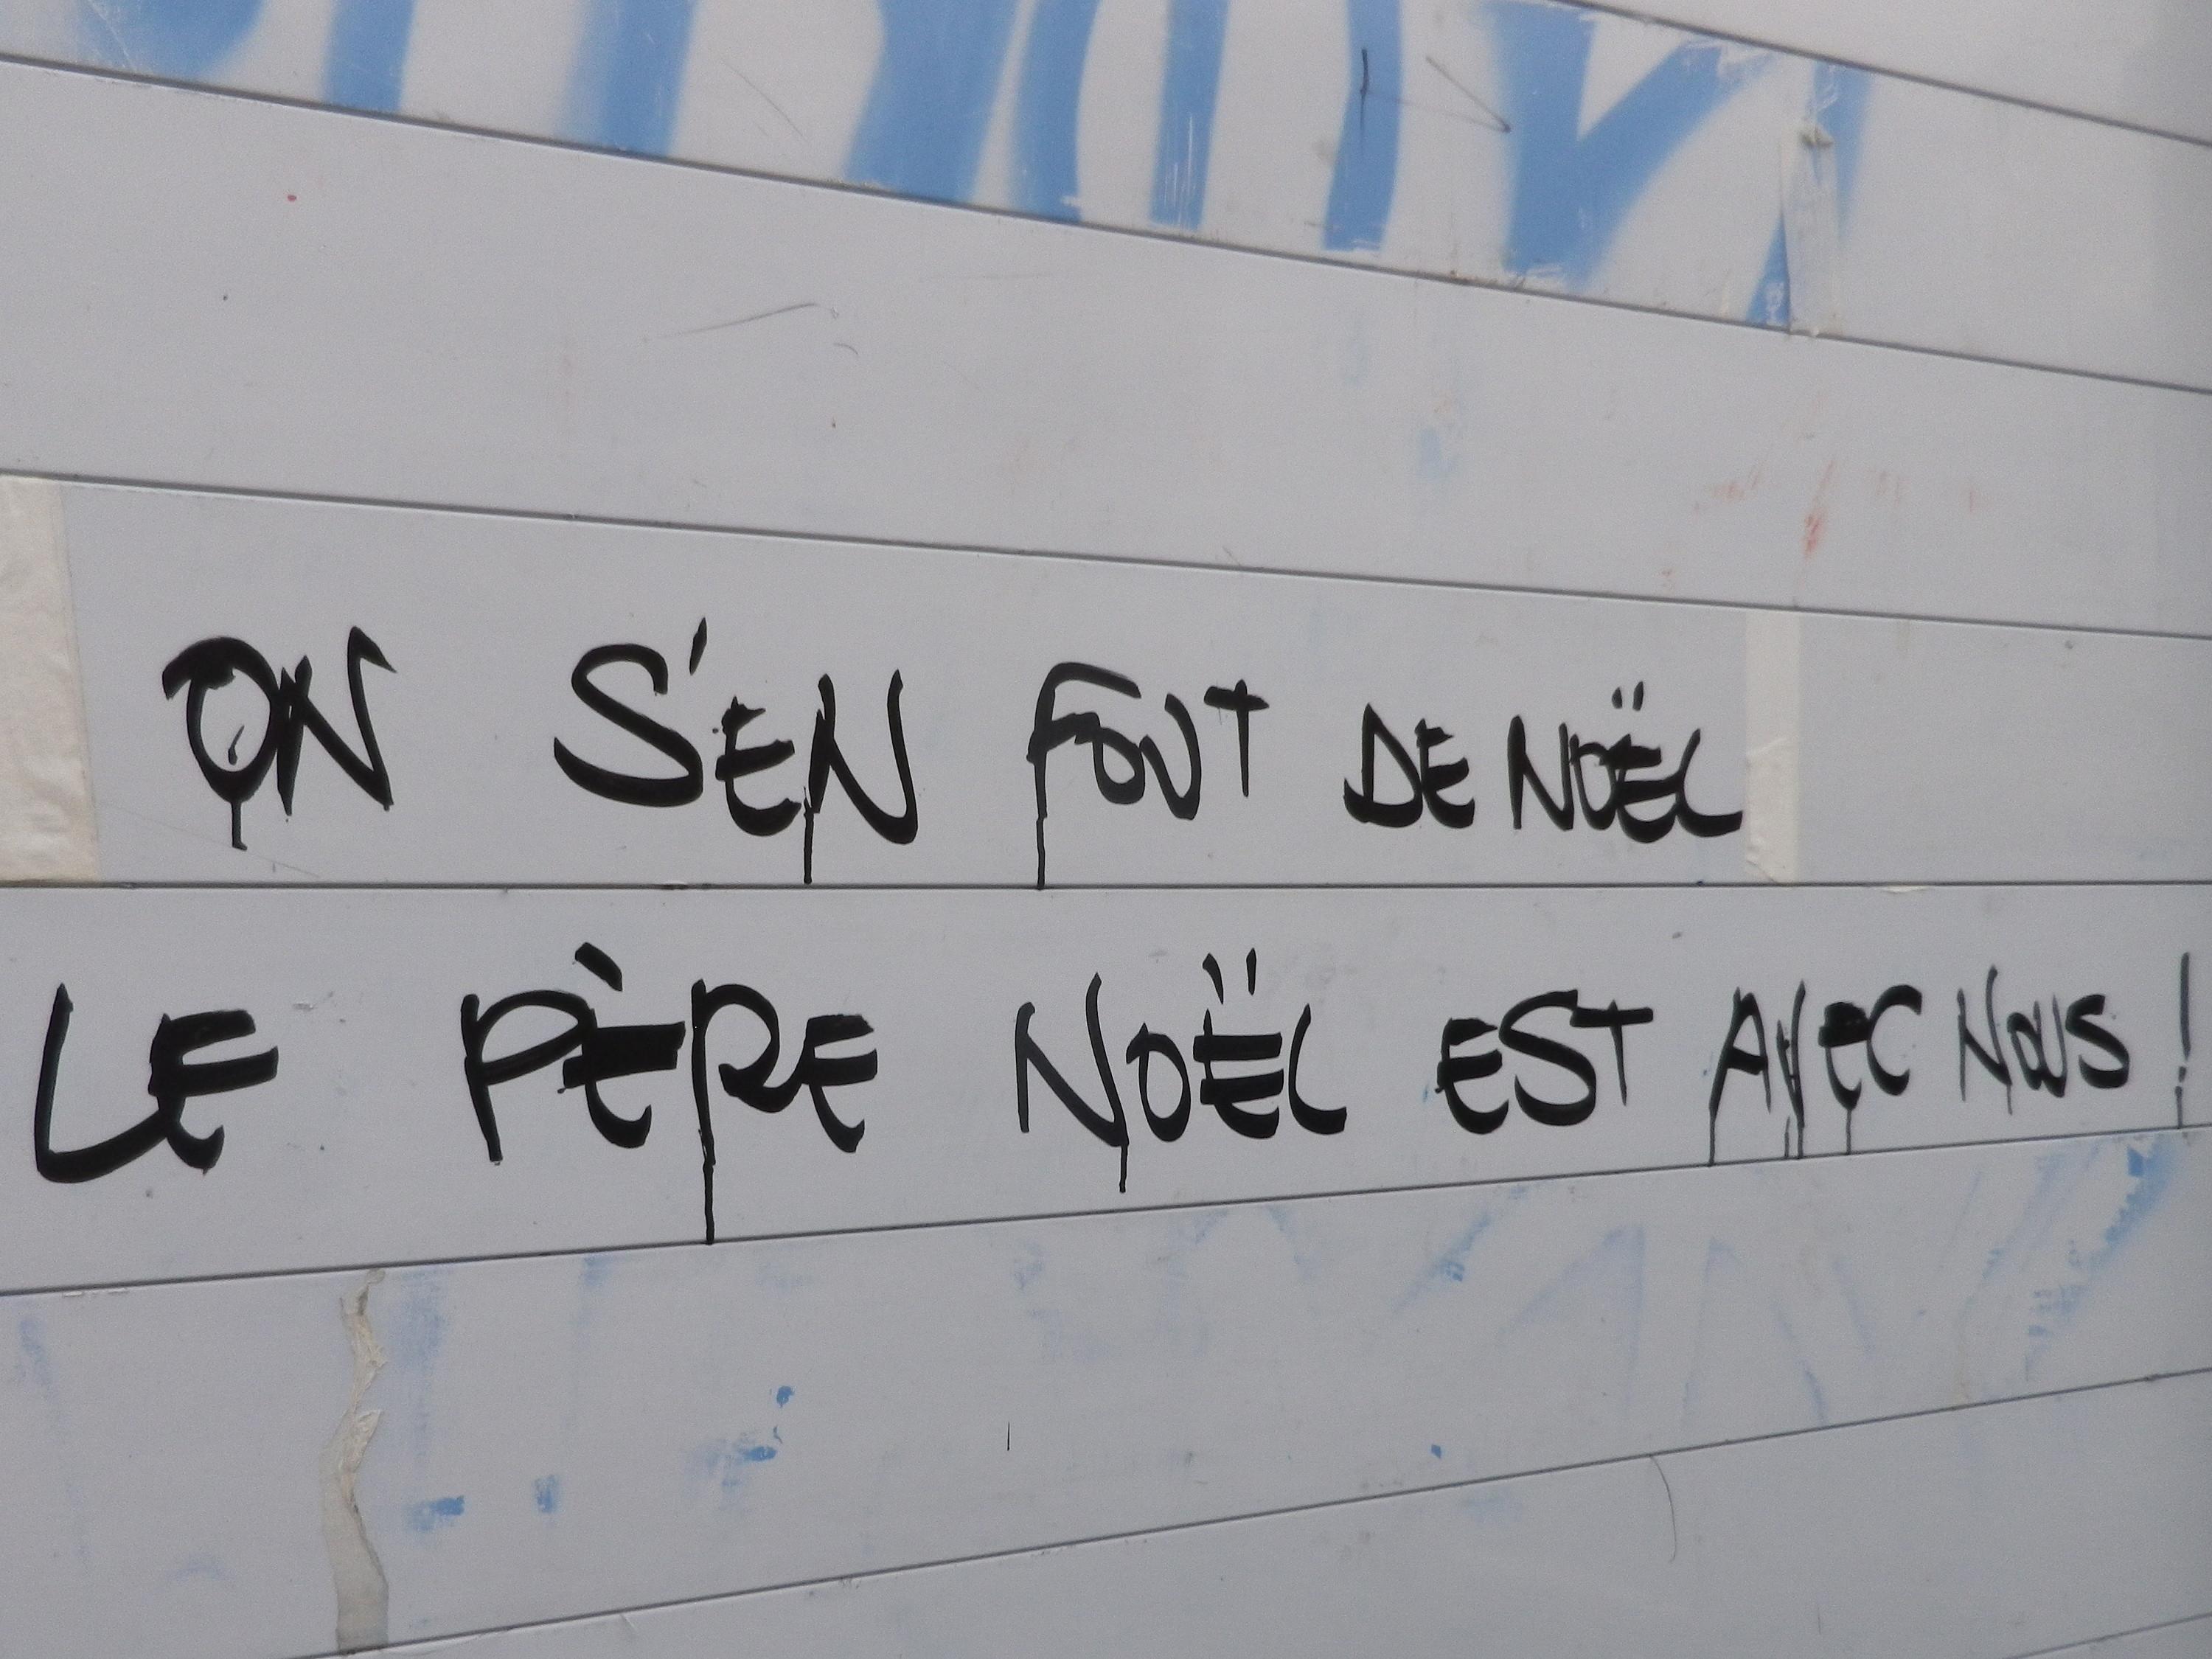 ON S'EN FOUT DE NOËL
LE PÈRE NOËL EST AVEC NOUS !